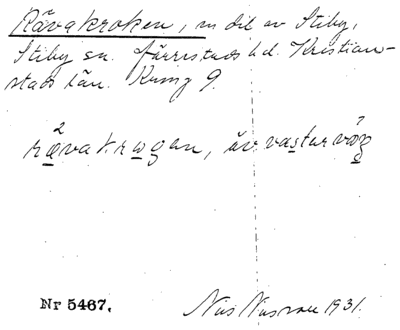 Rävakroken, m del av Stiby,
Stiby sn. Järrestads hd. Kristian-
stads län. Rung 9.
rävakrogen, äv. vastarväg
Nr 5467.
Nils 1931.